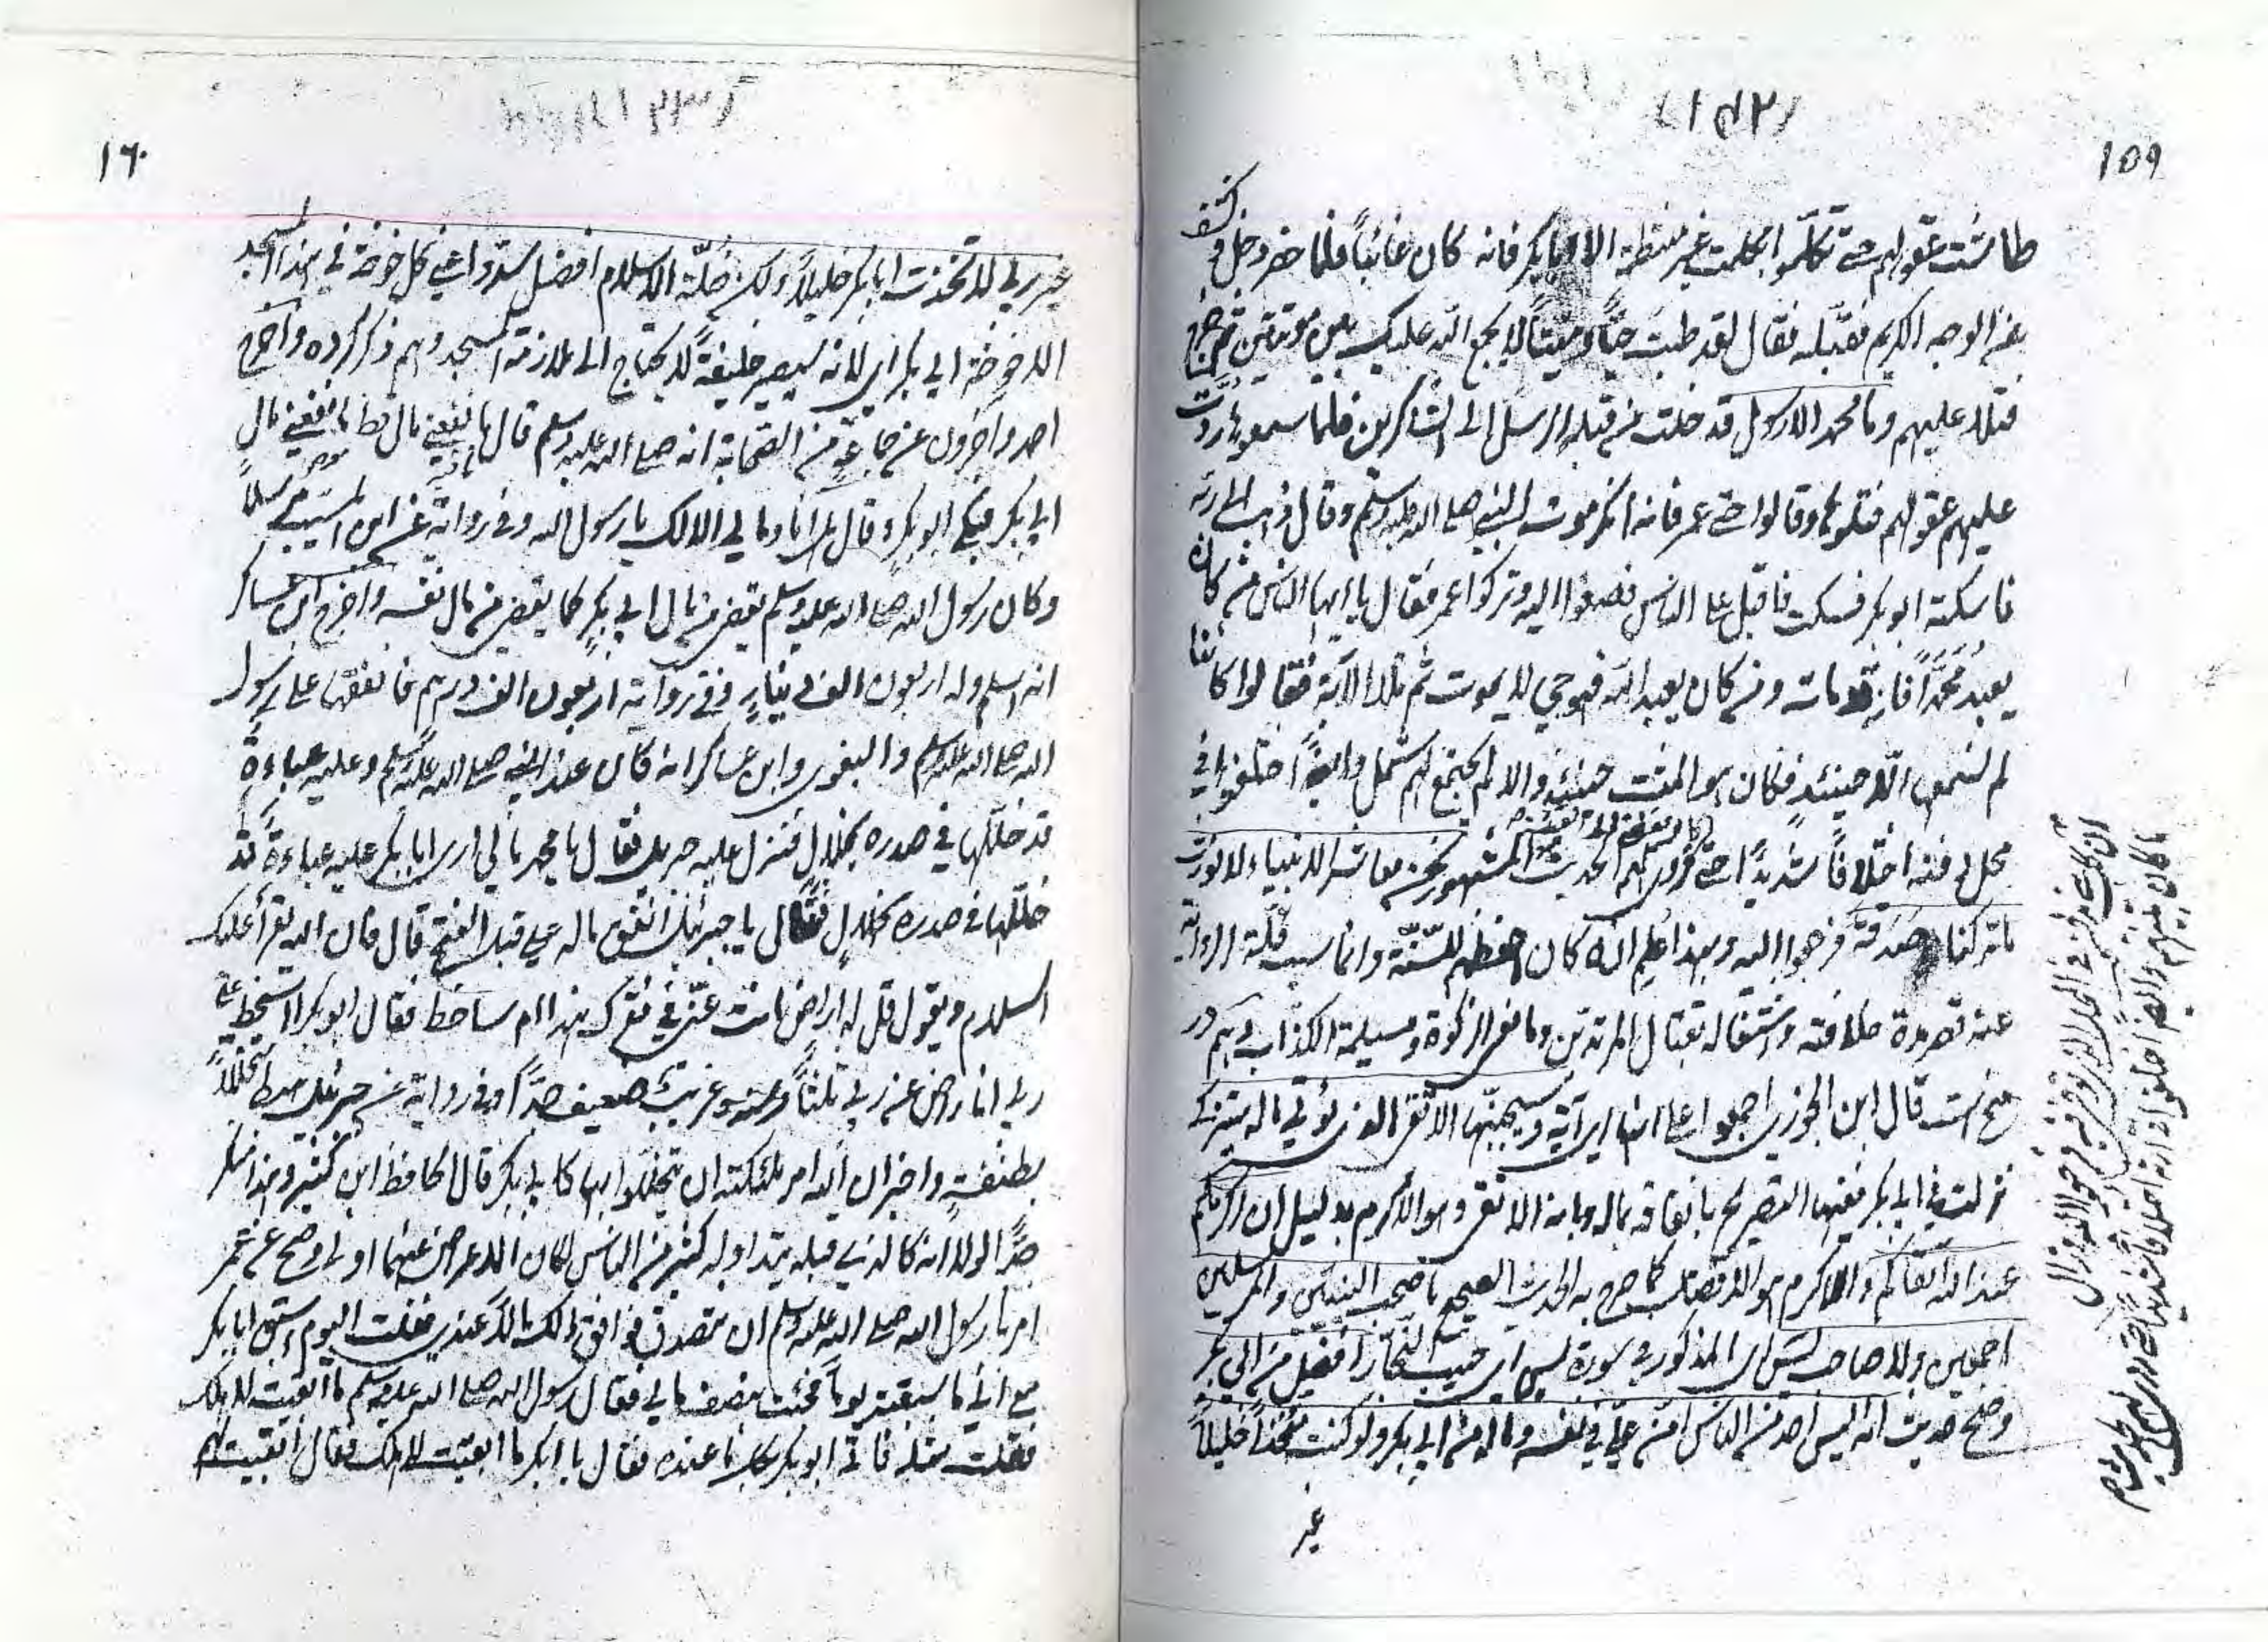 ١٥٩
طاشت عقولهم حتى تكلموا بكلمت غير منتظمة الا ابا بكر فانه كان غائباً فلما حضر دخل وكشف
عن الوجه الكريم فقبّله فقال لقد طبت حيّاً وميّتاً لا يجمع الله عليك بين موتتين ثم خرج
فتلا عليهم وما محمد الا رسول قد خلت من قبله الرسل الى الشاكرين فلما سمعوها ردّت
عليهم عقولهم فتلوها وقالوا حتى عمر فانه انكر موت النبي صلى الله عليه وسلم وقال ذهب الى ربّه
فاسكته ابو بكر فسكت فاقبل على الناس فصغوا اليه وتركوا عمر فقال يا ايها الناس من كان
يعبدُ محمّداً فانه قد مات ومن كان يعبد الله فهو حي لا يموت ثم تلا الآية فقالوا كأننا
لم نسمعها الّا حينئذٍ فكان هو المثبت حينئذٍ والا لم يجتمع لهم شمل وايضاً اختلفوا في
محل دفنه اختلافاً شديداً حتى روى لهم الحديث المشهور نحن معاشر الانبياء لا نورث
ما تركنا صدقة فرجعوا اليه وبهذا علم انه كان احفظهم للسّنّة وانما سبب قلّة الرواية
عنه قصر مدة خلافته واشتغاله بقتال المرتدين ومانعى الزكوة ومسيلمة الكذّاب وهم در
منح است قال ابن الجوزى اجمعوا على انها اى آية وسيجنّبها الاتقى الذى يؤتي ماله يتزكى
نزلت في ابي بكر ففيها التصريح بانفاقه ماله وبانه الاتقى وهو الاكرم بدليل ان اكرمكم
عند الله اتقاكم والاكرم هو الافضل كما صرح به الحديث الصحيح ما صحب النبيّين والمرسلين
اجمعين ولا صاحب يٓس اى المذكور في سورة يس اى حبيب النجّار افضل من ابي بكر
وصح حديث انه ليس احد من الناس امنّ عليّ في نفسه وماله من ابي بكر ولو كنت متخذاً خليلاً
غير
١٦٠
غير ربي لاتخذت ابا بكر خليلاً ولكن خلّة الاسلام افضل سدّوا عني كل خوخة في هذا المسجد
الا خوخة ابي بكر اى لانه سيصير خليفةً لا يحتاج الى ملازمة المسجد وهم ذكر كرده واخرج
احمد واخرون عن جماعةٍ من الصّحابة انه صلى الله عليه وسلم قال ما نفعني مال قط ما نفعني مال
ابي بكر فبكى ابو بكر وقال هل انا ومالي الا لك يا رسول الله وفي رواية عن ابن المسيّب مرسلاً
وكان رسول الله صلى الله عليه وسلم يقضي من مال ابي بكر كما يقضي من مال نفسه واخرج ابن عساكر
انه اسلم وله اربعون الف دينارٍ وفي رواية اربعون الف درهم فانفقها على رسول
الله صلى الله عليه وسلم والبغوى وابن عساكر انه كان عند النبي صلى الله عليه وسلم وعليه عباءةٌ
قد خلّلها في صدره بخلالٍ فنزل عليه جبريل فقال يا محمد ما لي ارى ابا بكر عليه عباءةٌ قد
خلّلها في صدره بخلالٍ فقال يا جبرئيل انفق ماله علي قبل الفتح قال فان الله يقرأ عليك
السلام ويقول قل له اراضٍ انت عنّي في فقرك هذا ام ساخط فقال ابو بكر ااسخط على
ربي انا راض عن ربي ثلثاً وسنده غريب ضعيف جدّاً وفي رواية عن جبرئيل هبط متخللاً
بطنفسةٍ واخبر ان الله امر ملئكته ان يتخللوا بها كابي بكر قال الحافظ ابن كثير وهذا منكر
جدّاً لولا انه كالذي قبله يتداوله كثير من الناس لكان الاعراض عنهما اولى وصح عن عمر
امرنا رسول الله صلى الله عليه وسلم ان نتصدق فوافق ذلك مالاً عندي فقلت اليوم اسبق ابا بكر
مع اني ما سبقته يوماً فجئت بنصف مالي فقال رسول الله صلى الله عليه وسلم ما ابقيت لاهلك
فقلت مثله فاتى ابو بكر بكل ما عنده فقال يا ابا بكر ما ابقيت لاهلك فقال ابقيت لهم